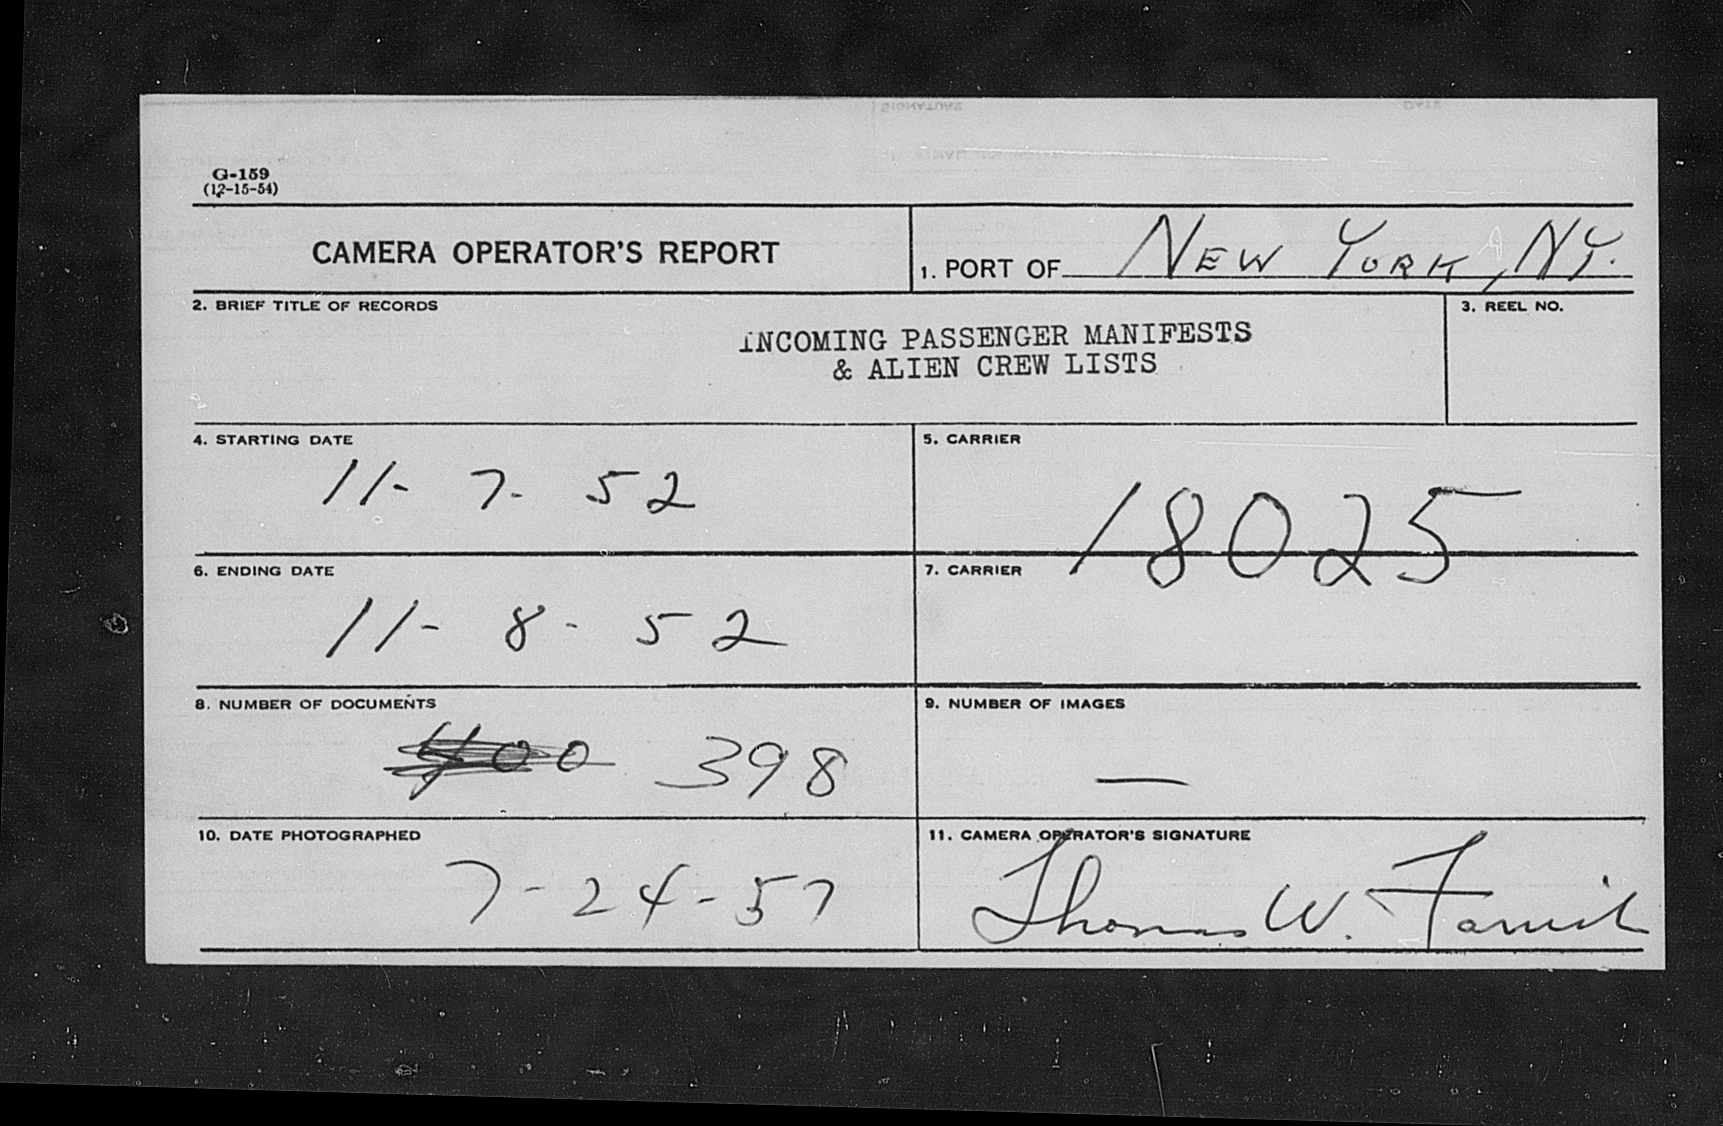 G-159
(12-15-54)
CAMERA OPERATOR'S REPORT
1. PORT OF NEW YORK, NY.
2. BRIEF TITLE OF RECORDS
INCOMING PASSENGER MANIFESTS
& ALIEN CREW LISTS
3. REEL NO.
4. STARTING DATE
11-7-52
5. CARRIER
18025
6. ENDING DATE
11-8-52
7. CARRIER
8. NUMBER OF DOCUMENTS
400 398
9. NUMBER OF IMAGES
—
10. DATE PHOTOGRAPHED
7-24-57
11. CAMERA OPERATOR'S SIGNATURE
Thomas W.